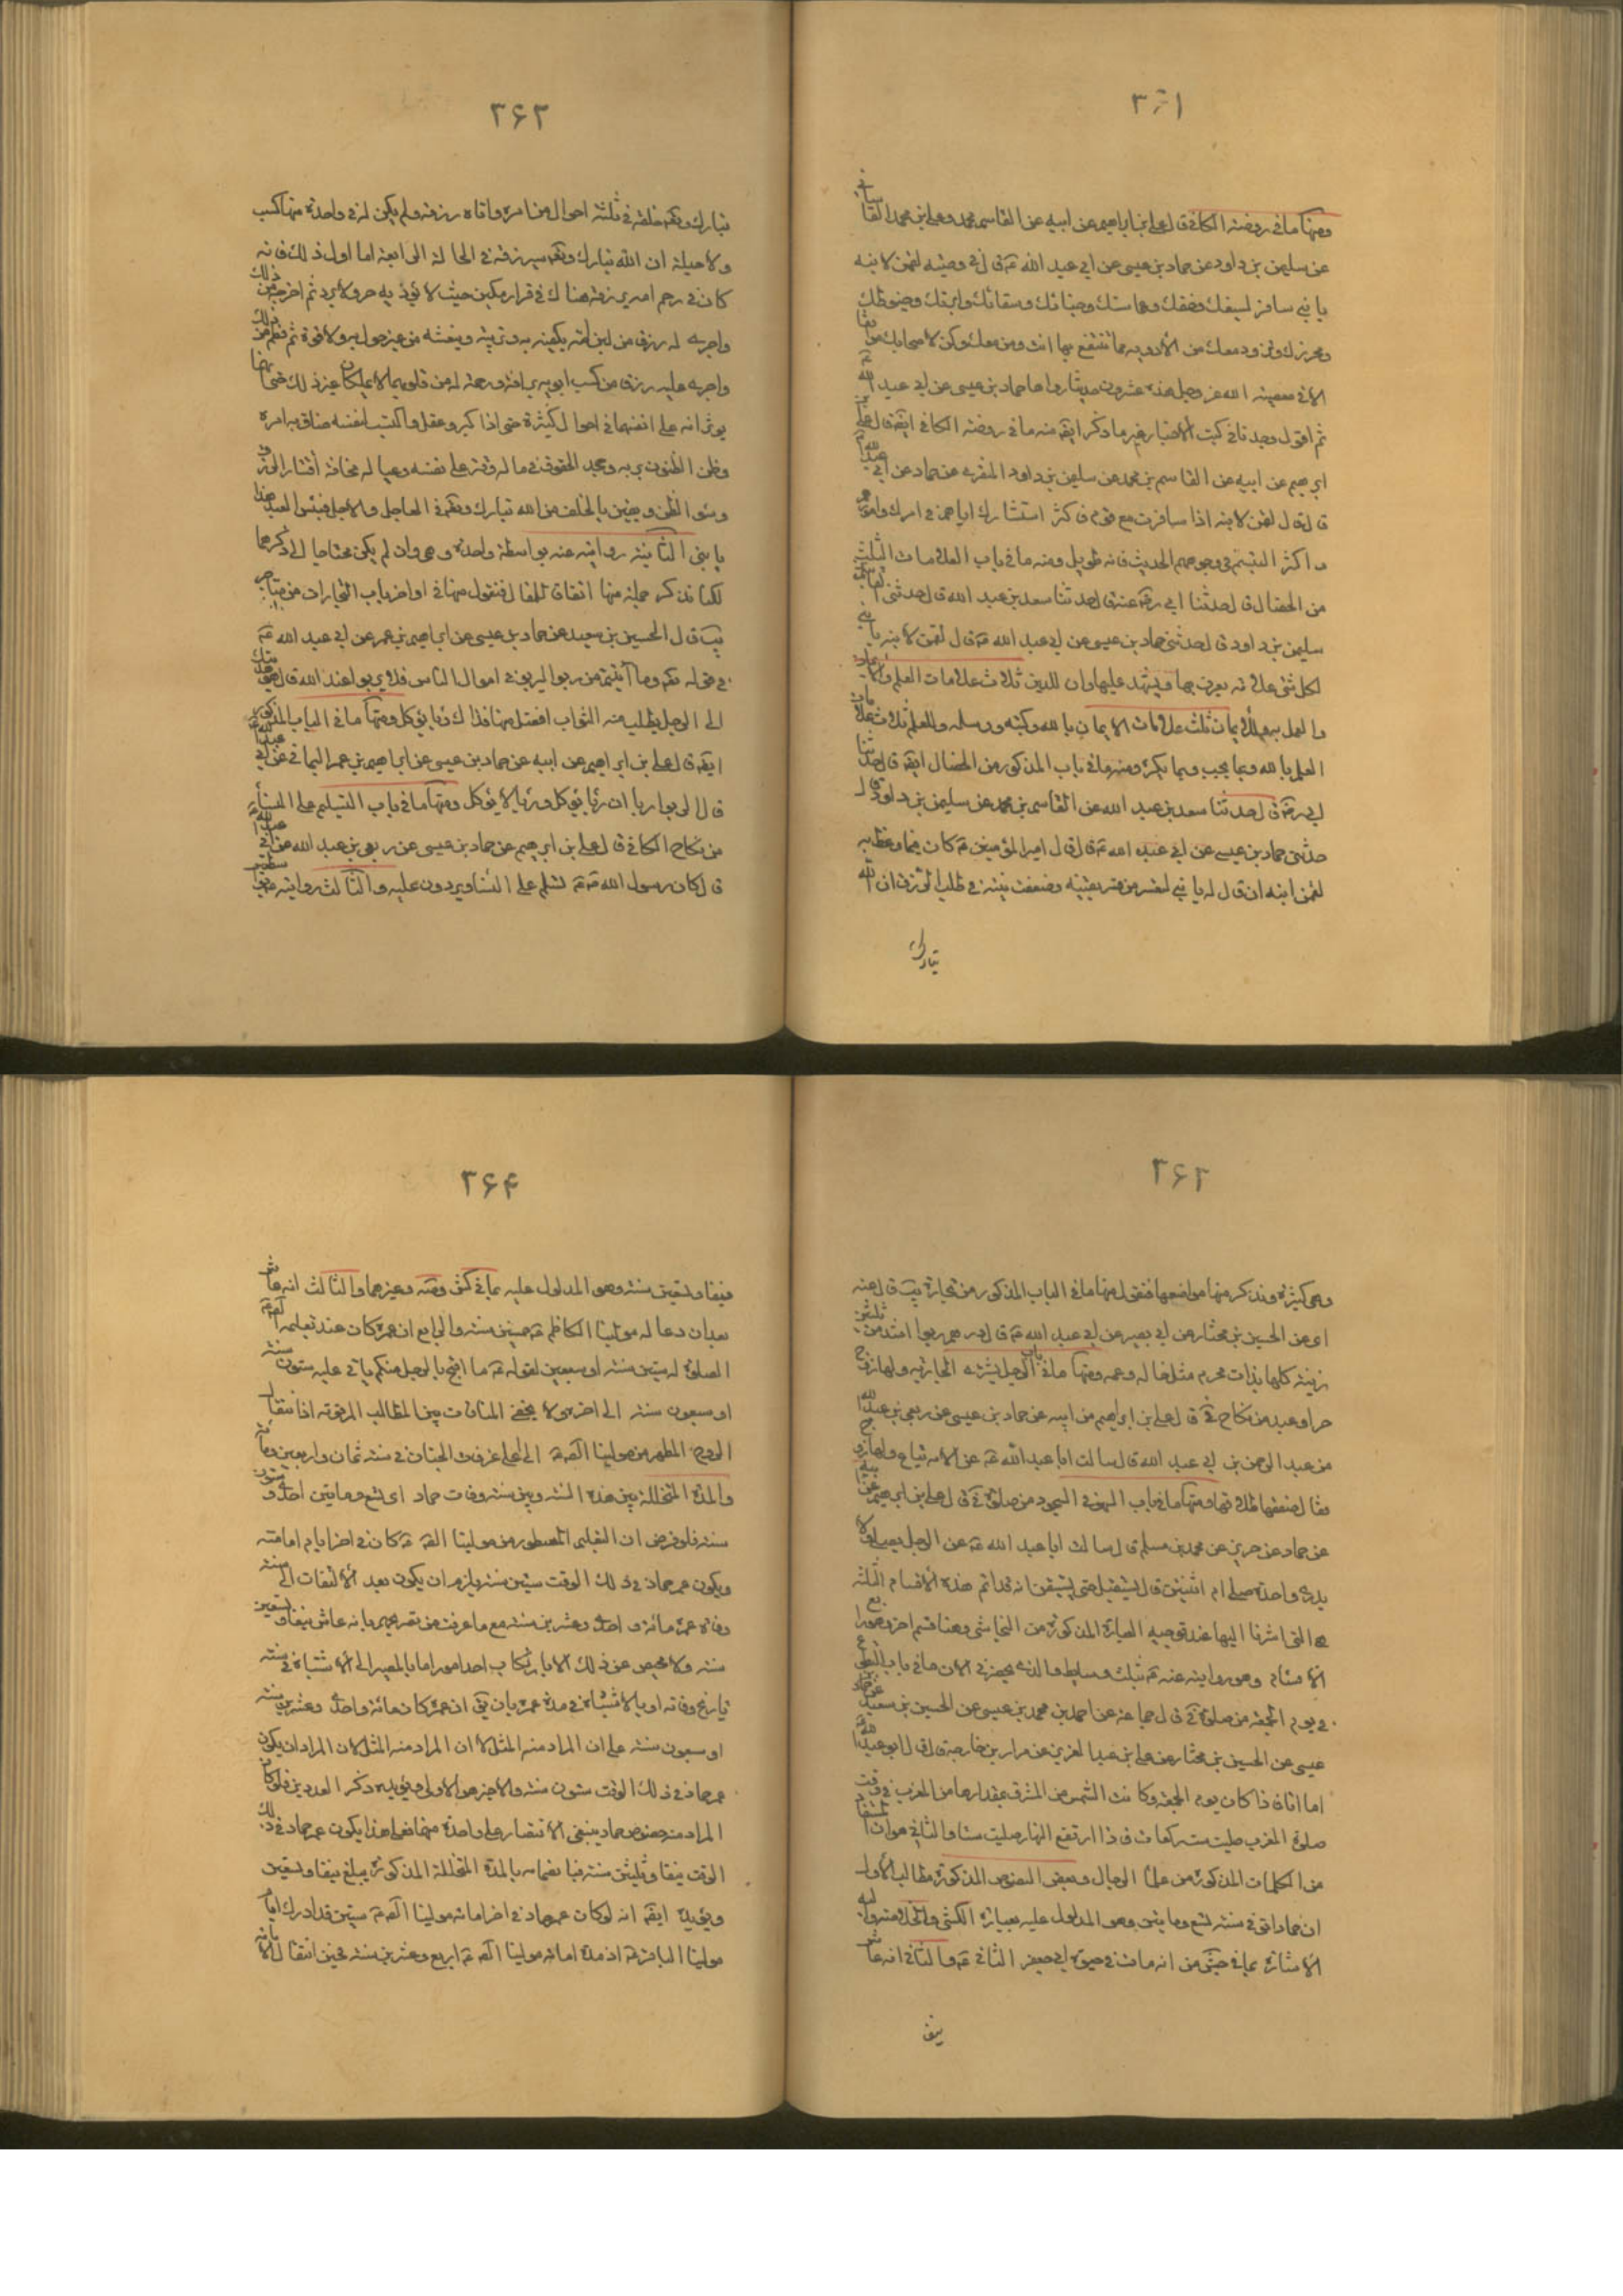 ۳۶۱
ومنها ما فى روضة الكافى قال على بن ابراهيم عن ابيه عن القاسم بن محمد وعلى بن محمد القاسانى
عن سليمن بن داود عن حماد بن عيسى عن ابى عبد الله ع قال فى وصية لقمن لابنه
يا بنى سافر بسيفك وخفك وعمامتك وسقائك وابرتك وخيوطك
ومخرزك وتزود معك من الادوية ما تنتفع بها انت ومن معك وكن لاصحابك موافقا
الا فى معصية الله عز وجل هذه عشرون حديثا رواها حماد بن عيسى عن ابى عبد الله ع
ثم اقول وجدنا فى كتب الاخبار غير ما ذكر ايضه منه ما فى روضة الكافى ايضه قال على بن
ابرهيم عن ابيه عن القاسم بن محمد عن سليمن بن داود المنقرى عن حماد عن ابى عبد الله ع
قال قال لقمن لابنه اذا سافرت مع قوم فاكثر استشارتك اياهم فى امرك وامورهم
واكثر التبسم فى وجوههم الحديث فانه طويل ومنه ما فى باب العلامات الثلث
من الخصال قال حدثنا ابى رضه عنه قال حدثنا سعد بن عبد الله قال حدثنى القاسم
سليمن بن داود قال حدثنى حماد بن عيسى عن ابى عبد الله ع قال قال لقمن لابنه يا بنى
لكل شئ علامة يعرف بها ويشهد عليها وان للدين ثلاث علامات العلم والايمان
والعمل به وللايمان ثلث علامات الايمان بالله وكتبه ورسله وللعلم ثلاث علامات
العلم بالله وبما يحب وبما يكره ومنه ما فى باب المذكور من الخصال ايضه قال حدثنا
ابى رضه قال حدثنا سعد بن عبد الله عن القاسم بن محمد عن سليمن بن داود قال
حدثنى حماد بن عيسى عن ابى عبد الله ع قال قال امير المؤمنين ع كان فيما وعظ به
لقمن ابنه ان قال له يا بنى ليعتبر من قصر يقينه وضعفت نيته فى طلب الرزق ان الله
تبارك
۳۶۲
تبارك وتعه خلقه فى ثلثة احوال من امره واتاه رزقه ولم يكن له فى واحدة منها كسب
ولا حيلة ان الله تبارك وتعه سيرزقه فى الحالة الرابعة اما اول ذلك فانه
كان فى رحم امه يرزقه هناك فى قرار مكين حيث لا يؤذيه حر ولا برد ثم اخرجه من ذلك
واجرى له رزقا من لبن امه يكفيه به وتربيه وينعشه من غير حول به ولا قوة ثم فطم من ذلك
واجرى عليه رزقا من كسب ابويه برافة ورحمة له من قلوبهما لا يملكان غير ذلك حتى انهما
يوثرانه على انفسهما فى احوال كثيرة حتى اذا كبر وعقل واكتسب لنفسه ضاق به امره
وظن الظنون بربه وجحد الحقوق فى ماله وقتر على نفسه وعياله مخافة اقتار الرزق
وسوء الظن ويقين بالخلف من الله تبارك وتعه فى العاجل والاجل فبئس العبد هذا
يا بنى الثانية روايته عنه بواسطة واحدة وهى وان لم يكن محتاجا الى ذكرها
لكنا نذكر جملة منها اتفاق للمقال فنقول منها فى اواخر باب التجارات من متاجر
يب قال الحسين بن سعيد عن حماد بن عيسى عن ابراهيم بن عمر عن ابى عبد الله ع
فى قوله تعه وما آتيتم من ربوا ليربو فى اموال الناس فلا يربوا عند الله قال هو هديتك
الى الرجل يطلب منه الثواب افضل منها فذلك ربا يؤكل ومنها ما فى الباب المذكور
ايضه قال على بن ابراهيم عن ابيه عن حماد بن عيسى عن ابراهيم بن عمر اليمانى عن ابى عبد الله ع
قال الربوا رباان ربا يؤكل وربا لا يؤكل ومنها ما فى باب التسليم على النساء
من نكاح الكافى قال على بن ابرهيم عن حماد بن عيسى عن ربعى بن عبد الله عن ابى عبد الله ع
قال كان رسول الله ص يسلم على النساء ويرددن عليه والثالث روايته عنه بواسطتين
۳۶۳
وهى كثيرة ونذكر منها مواضعها فنقول منها ما فى الباب المذكور من تجارة يب قال عنه
اى عن الحسين بن مختار عن ابى بصير عن ابى عبد الله ع قال درهم ربوا اشد من ثلثين
زنية كلها بذات محرم مثل خالة وعمة ومنها ما فى باب الرجل يشترى الجارية ولها زوج
حر او عبد من نكاح فى قال على بن ابراهيم عن ابيه عن حماد بن عيسى عن ربعى بن عبد الله
عن عبد الرحمن بن ابى عبد الله قال سالت ابا عبد الله ع عن الامة تباع ولها زوج
فقال صفقتها طلاقها ومنها ما فى باب السهو فى السجود من صلوة فى قال على بن ابرهيم عن ابيه
عن حماد عن حريز عن محمد بن مسلم قال سالت ابا عبد الله ع عن الرجل يصلى ولا
يدرى واحدة صلى ام اثنتين قال يستقبل حتى يستيقن انه قد اتم هذه الاقسام الثلثة
هى التى اشرنا اليها عند توجيه العبارة المذكورة من النجاشى وهنا قسم اخر وهو رابع
الاقسام وهو روايته عنه ع بثلث وسايط والذى يحضرنى الان ما فى باب التطوع
فى يوم الجمعة من صلوة فى قال جماعة عن احمد بن محمد بن عيسى عن الحسين بن سعيد عن حماد بن
عيسى عن الحسين بن مختار عن على بن عبد العزيز عن مراد بن خارجة قال قال ابو عبد الله ع
اما انا فاذا كان يوم الجمعة وكانت الشمس من المشرق بمقدارها من المغرب فى وقت
صلوة المغرب صليت ست ركعات فاذا ارتفع النهار صليت ستا والثانى هو ان المستفاد
من الكلمات المذكورة من علماء الرجال وبعض النصوص المذكورة مطالب الاول
ان حماد توفى فى سنة تسع ومايتين وهو المدلول عليه بعبارة الكشى والخلاصة واليه
الاشارة بما فى جش من انه مات فى حيوة ابى جعفر الثانى ع والثانى انه عاش
نيف
۳۶۴
نيفا وتسعين سنة وهو المدلول عليه بما فى كش وصه وغيرهما والثالث انه عاش
بعد ان دعا له مولينا الكاظم ع خمسين سنة والرابع ان عمره كان عند تعليمه ع له
الصلوة له ستين سنة او سبعين لقوله ع ما اقبح بالرجل منكم ياتى عليه ستون سنة
او سبعون سنة الى اخره ولا يخفى المنافات بين المطالب المرقومة اذ انتقال
الروح المطهر من مولينا الصه ع الى اعلى غرفات الجنان فى سنة ثمان واربعين ومائة
والمدة المتخللة بين هذه السنة وبين سنة وفات حماد اى تسع ومايتين احدى وستون
سنة فلو فرض ان التعليم المسطور من مولينا الصه ع كان فى اخر ايام امامته
ويكون عمر حماد فى ذلك الوقت ستين سنة يلزم ان يكون بعد الالتفات الى سنة
وفاته عمره مائة واحدى وعشرين سنة مع ما عرفت من تصريحهم بانه عاش نيفا وتسعين
سنة ولا محيص عن ذلك الا بارتكاب احد امور اما بالمصير الى الاشتباه فى سنة
تاريخ وفاته او بالاشتباه فى مدة عمره بان يق ان عمره كان مائة واحدى وعشرين سنة
او سبعون سنة على ان المراد منهم المثل لا ان المراد منه المثل لان المراد ان يكون
عمر حماد فى ذلك الوقت ستون سنة والاخير هو الاولى ويؤيده ذكر العددين فلو كان
المراد منه خصوص حماد ينبغى الاقتصار على واحدة منهما فعلى هذا يكون عمر حماد فى ذلك
الوقت نيفا وثلثين سنة فبانضمامه بالمدة المتخللة المذكورة يبلغ نيفا وتسعين
ويؤيده ايضه انه لو كان عمر حماد فى اخر امامة مولينا الصه ع ستين قد ادرك ايام
مولينا الباقر ع اذ مدة امامة مولينا الصه ع اربع وعشرين سنة فحين انتقال الامامة